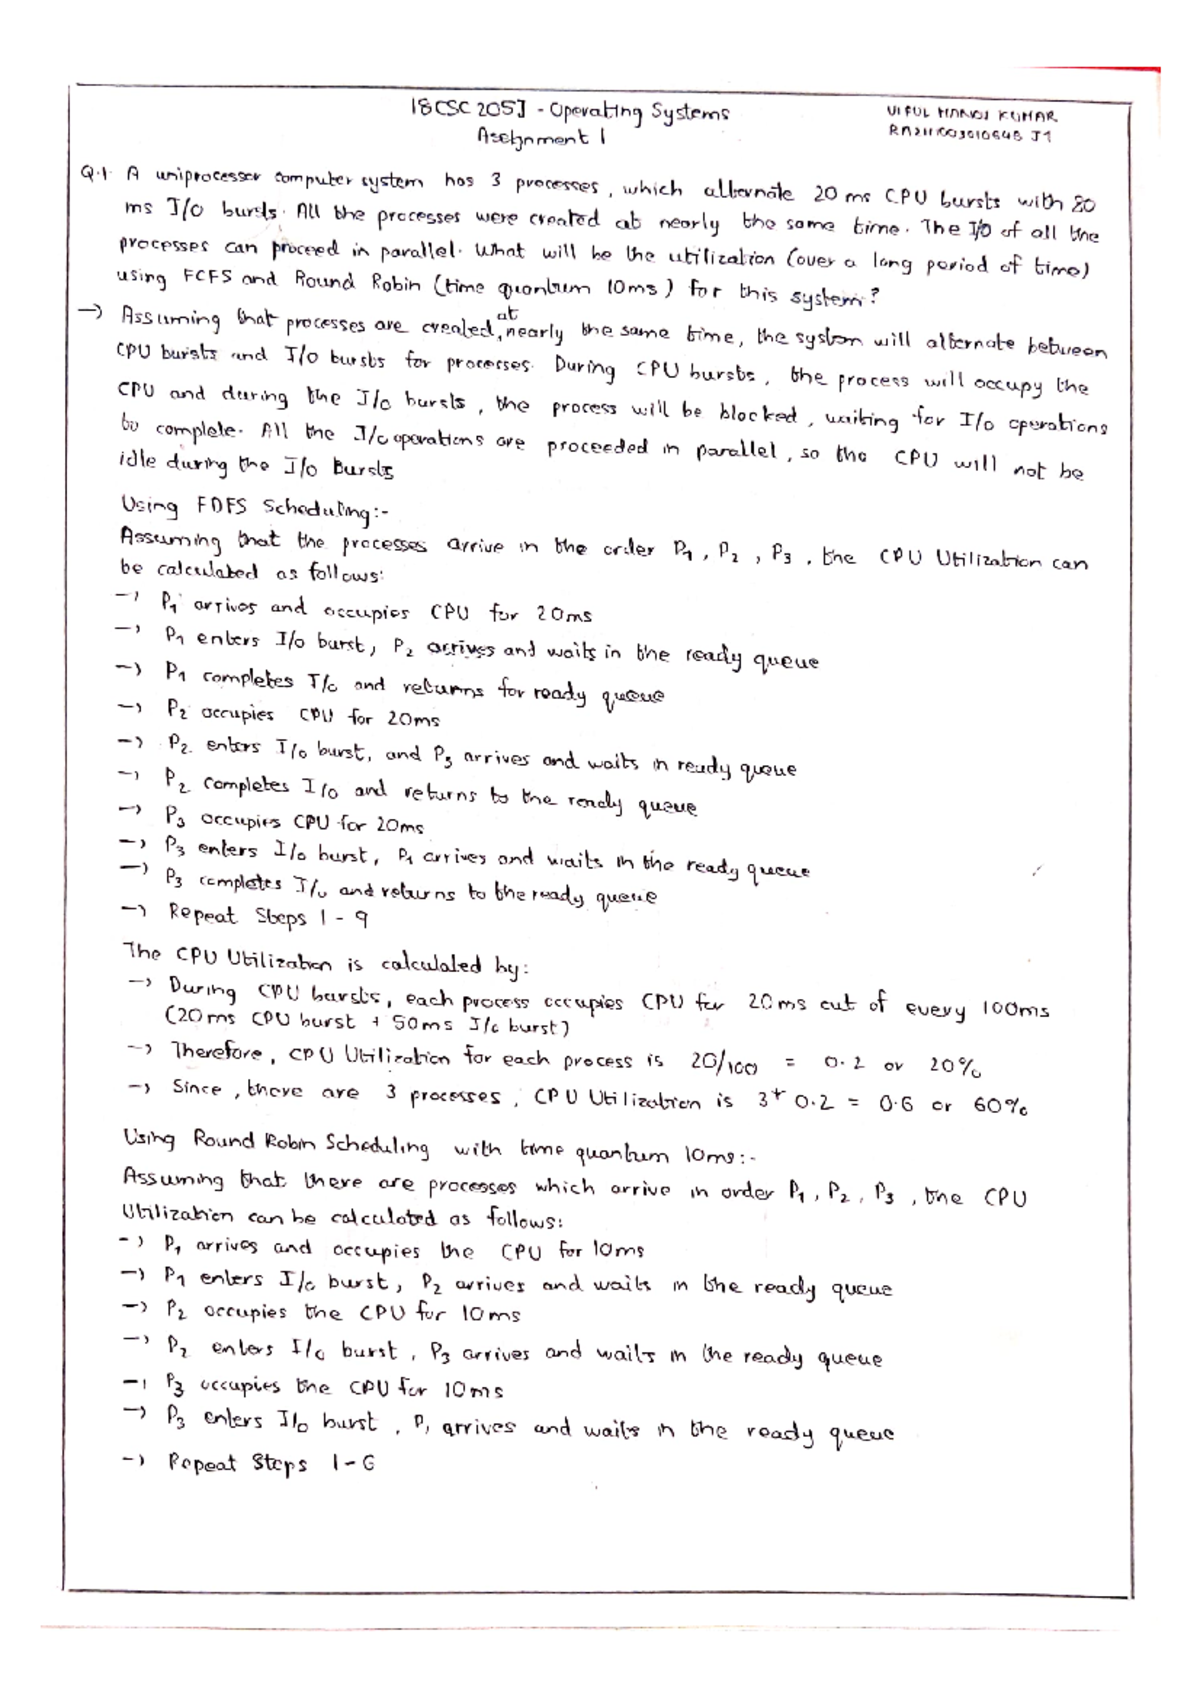 18CSC205J - Operating Systems
VIPUL MANOJ KUMAR
Assignment 1
J1
Q.1. A uniprocessor computer system has 3 processes, which alternate 20 ms CPU bursts with 80
ms I/O bursts. All the processes were created at nearly the same time. The I/O of all the
processes can proceed in parallel. What will be the utilization (over a long period of time)
using FCFS and Round Robin (time quantum 10ms) for this system?
→ Assuming that processes are created, at nearly the same time, the system will alternate between
CPU bursts and I/O bursts for processes. During CPU bursts, the process will occupy the
CPU and during the I/O bursts, the process will be blocked, waiting for I/O operations
to complete. All the I/O operations are proceeded in parallel, so the CPU will not be
idle during the I/O Bursts
Using FDFS Scheduling:-
Assuming that the processes arrive in the order P1, P2, P3, the CPU Utilization can
be calculated as follows:
→ P1 arrives and occupies CPU for 20ms
→ P1 enters I/O burst, P2 arrives and waits in the ready queue
→ P1 completes I/O and returns for ready queue
→ P2 occupies CPU for 20ms
→ P2 enters I/O burst, and P3 arrives and waits in ready queue
→ P2 completes I/O and returns to the ready queue
→ P3 occupies CPU for 20ms
→ P3 enters I/O burst, P1 arrives and waits in the ready queue
→ P3 completes I/O and returns to the ready queue
→ Repeat Steps 1 - 9
The CPU Utilization is calculated by:
→ During CPU bursts, each process occupies CPU for 20ms out of every 100ms
(20ms CPU burst + 50ms I/O burst)
→ Therefore, CPU Utilization for each process is 20/100 = 0.2 or 20%
→ Since, there are 3 processes, CPU Utilization is 3* 0.2 = 0.6 or 60%
Using Round Robin Scheduling with time quantum 10ms:-
Assuming that there are processes which arrive in order P1, P2, P3, the CPU
Utilization can be calculated as follows:
→ P1 arrives and occupies the CPU for 10ms
→ P1 enters I/O burst, P2 arrives and waits in the ready queue
→ P2 occupies the CPU for 10ms
→ P2 enters I/O burst, P3 arrives and waits in the ready queue
→ P3 occupies the CPU for 10ms
→ P3 enters I/O burst, P1 arrives and waits in the ready queue
→ Repeat Steps 1-6